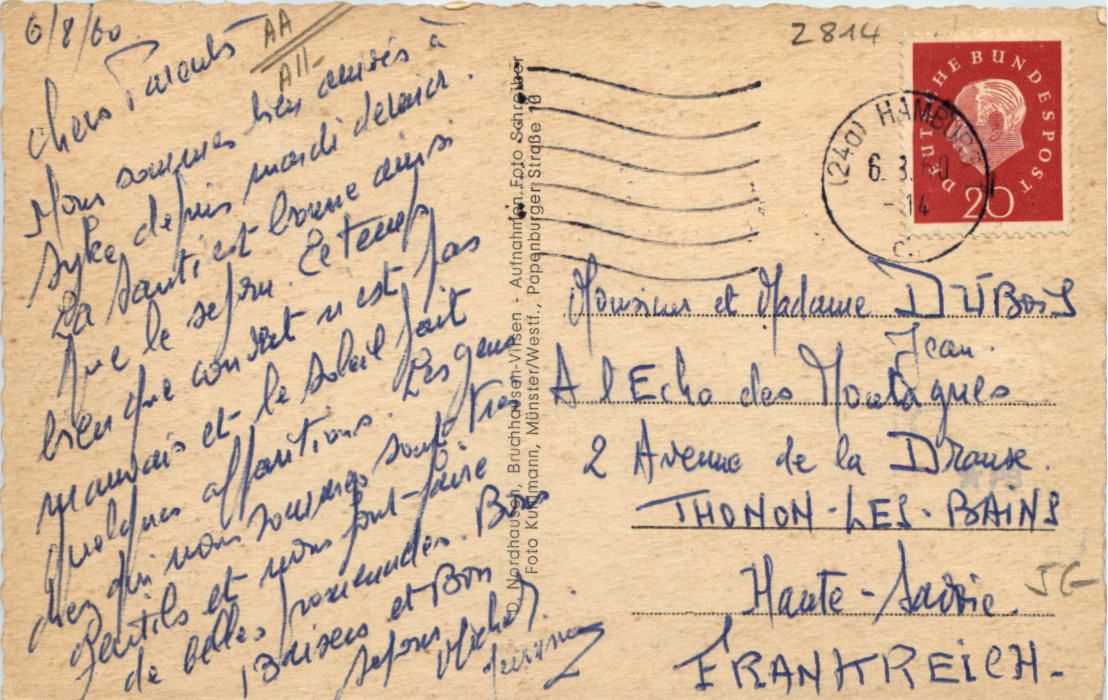 6/8/60
AA
All-
Chers Parents
Nous sommes bien arrivés à
Syke depuis mardi dernier.
La santé est bonne ainsi
que le séjour. Le temps
bien que couvert n'est pas
mauvais et le soleil fait
quelques apparitions. Les gens
chez qui nous sommes sont très
gentils et nous font faire
de belles promenades. Bons
Baisers et Bon
séjour
2814
DEUTSCHE BUNDESPOST
20
(24a) HAMBURG
6. 8. 60
- 14
Nordhausen, Bruchhausen-Vilsen - Aufnahmen Foto Schreiber
Foto Kuhlmann, Münster/Westf., Papenburger Straße 10
Monsieur et Madame DUBOIS
Jean.
A l'Echo des Montagnes
2 Avenue de la Dranse.
THONON-LES-BAINS
Haute-Savoie.
FRANKREICH-